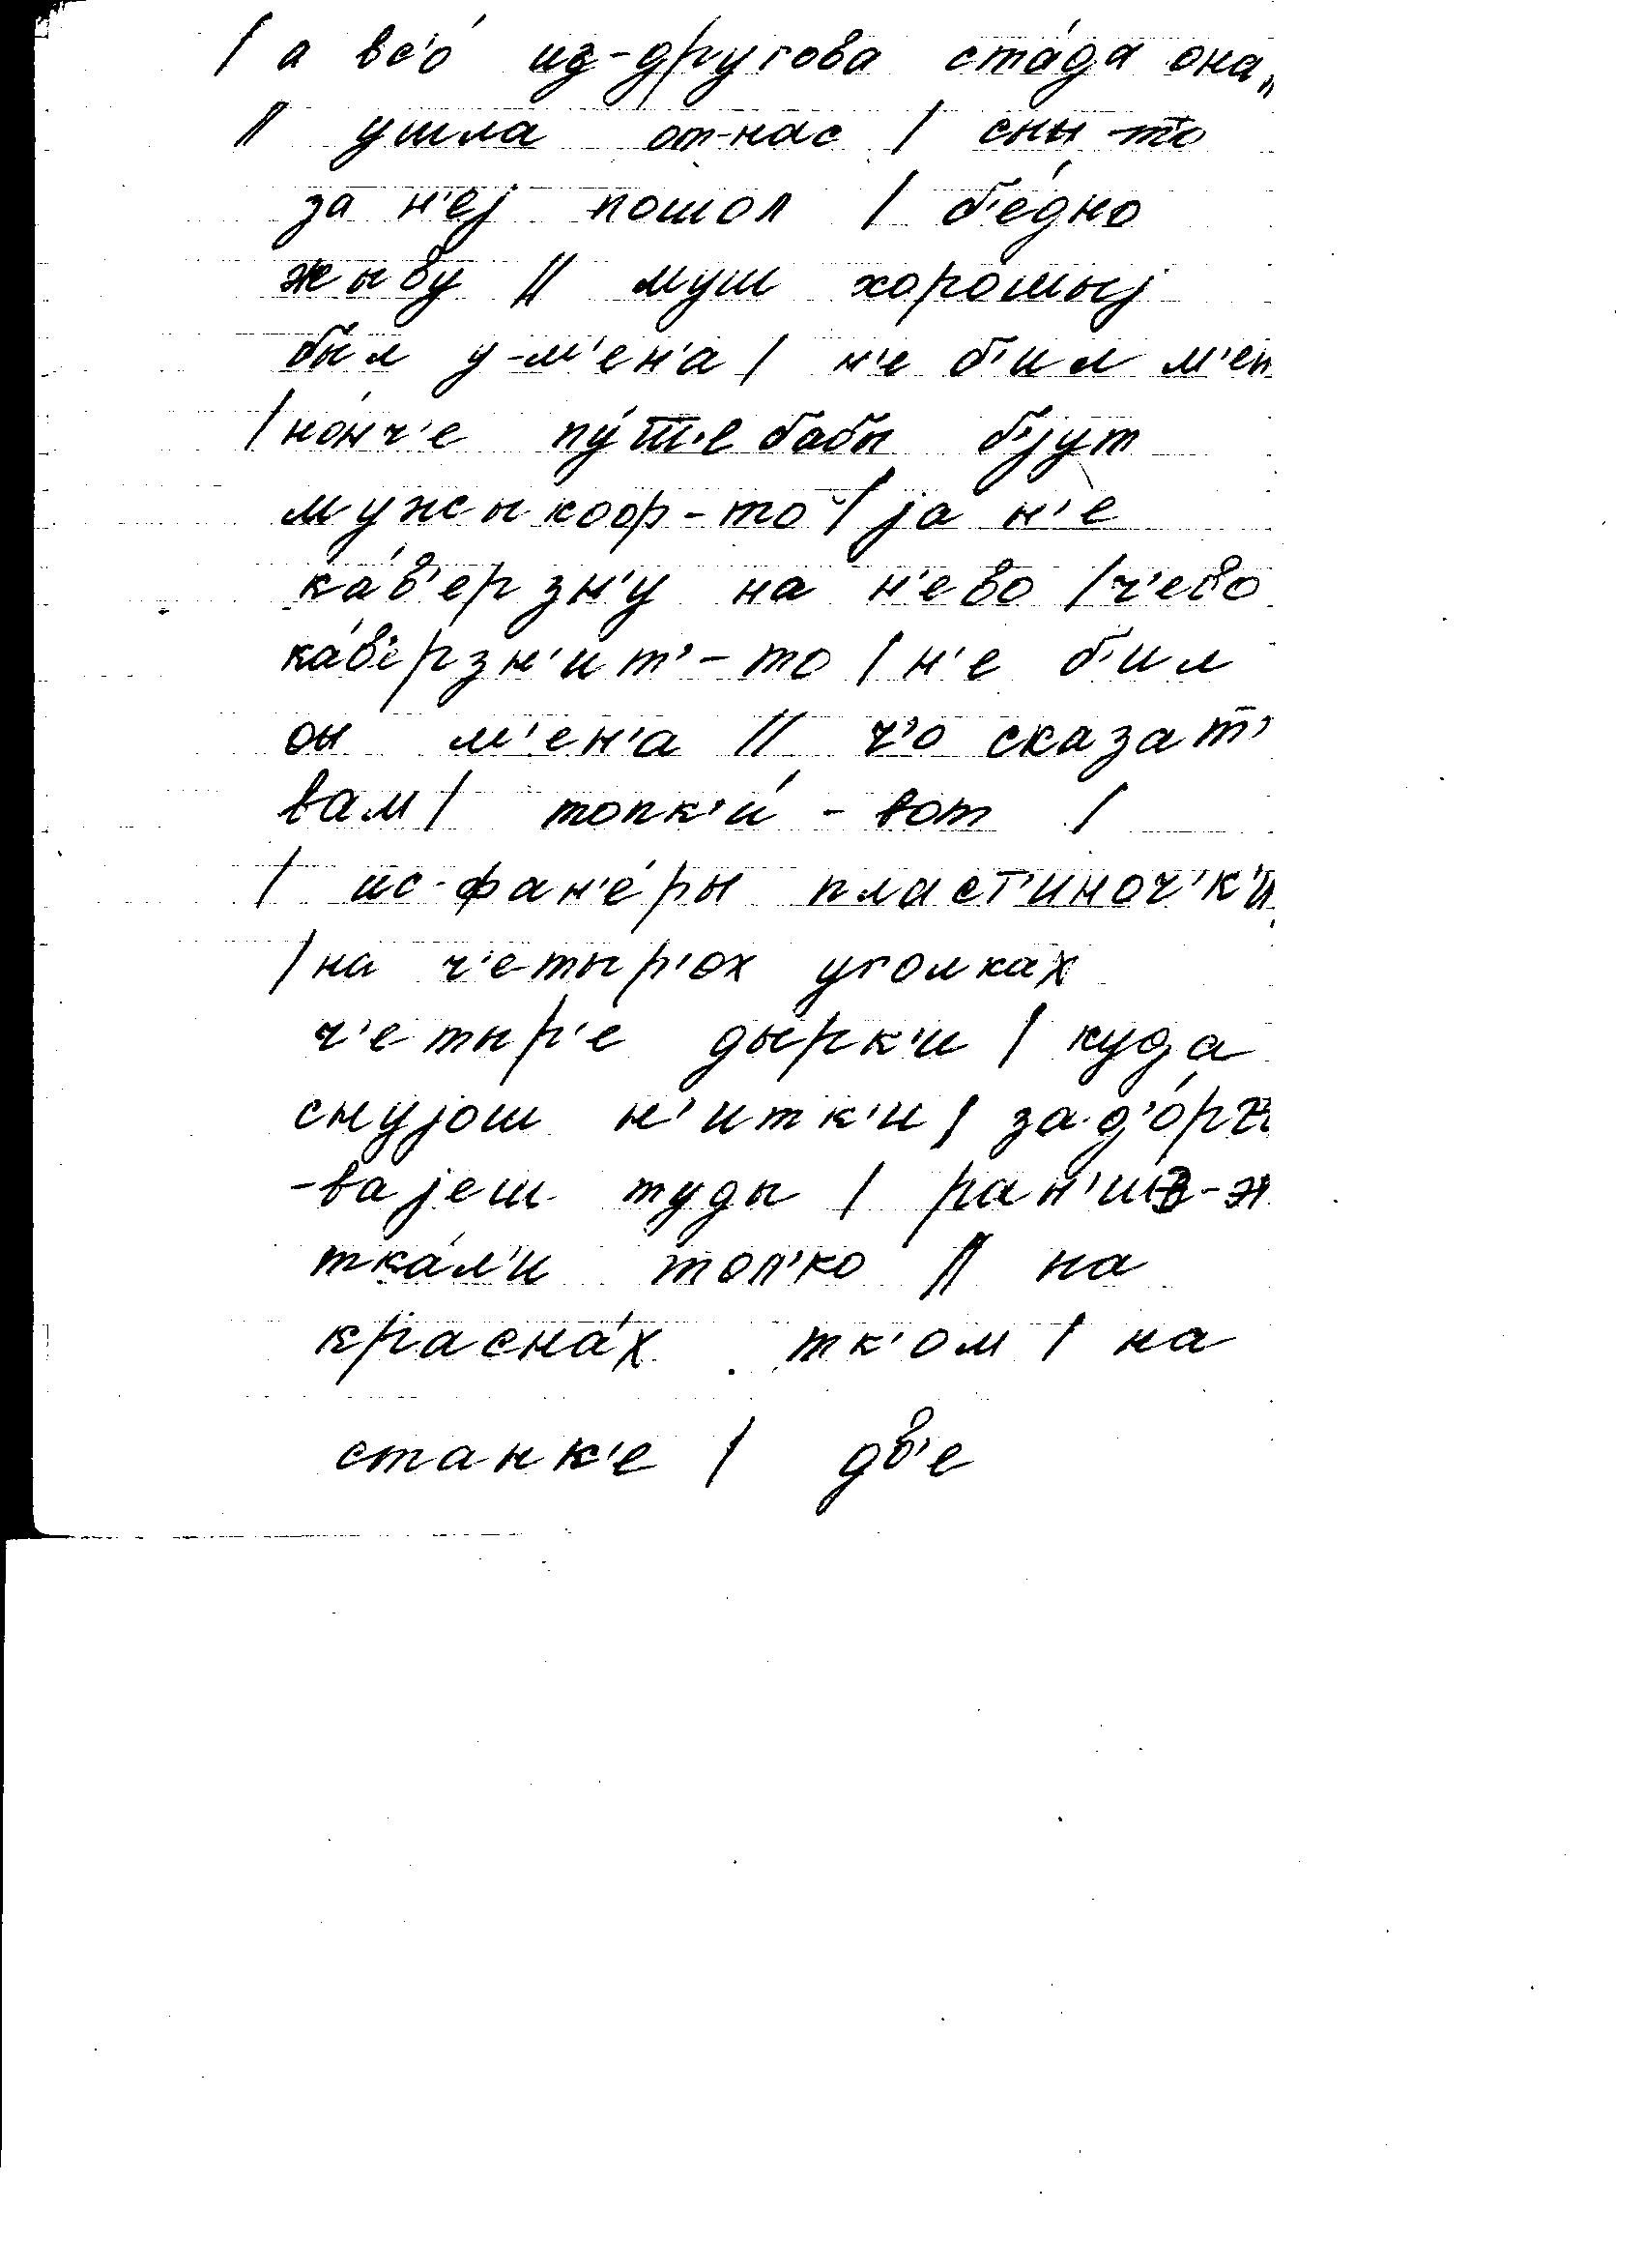 / а вс'о́ из-другова ста́да она //
// ушла от-нас / сны-то
за н'еј пошол / б'е́дно
жыву // муш хорошыј
был у-м'ен'а / н'е б'ил м'ен
/ но́нч'е пу́шше бабы б'јут
мужыкоф-то / ја н'е
ка́в'ерзн'у на н'ево / ч'ево
ка́в'ерзн'ит'-то / н'е б'ил
он м'ен'а // ч'о сказат'
вам / топк'и́-вот /
/ ис-фан'е́ры пласт'иноч'к'и
/ на ч'етыр'ох уголках
ч'етыр'е дырк'и / куда
снујош н'итк'и / за-д'о́рг
-вајеш туды / ран'ше-ж
тка́л'и тол'ко // на
красна́х тк'ом / на
станк'е / дв'е